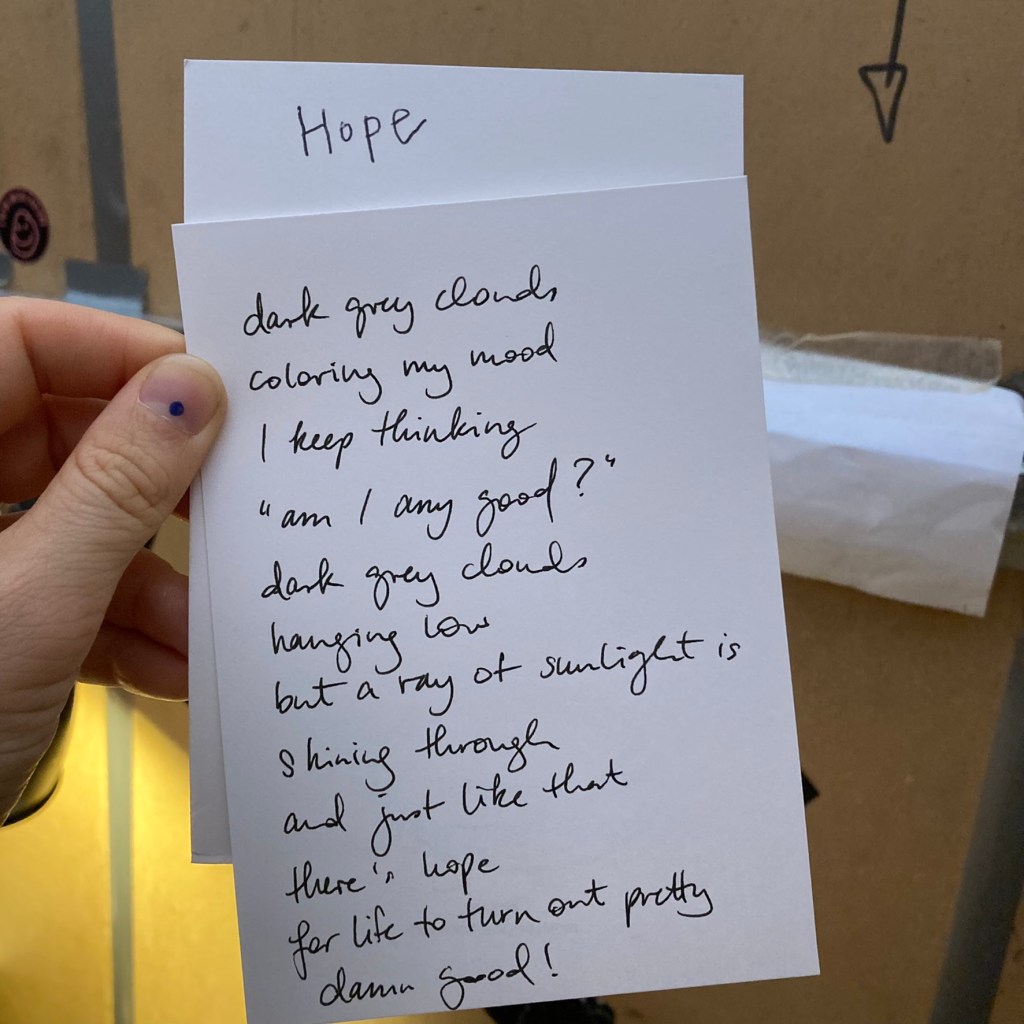 Hope
dark grey clouds
coloring my mood
I keep thinking
"am I any good?"
dark grey clouds
hanging low
but a ray of sunlight is
shining through
and just like that
there's hope
for life to turn out pretty
damn good!